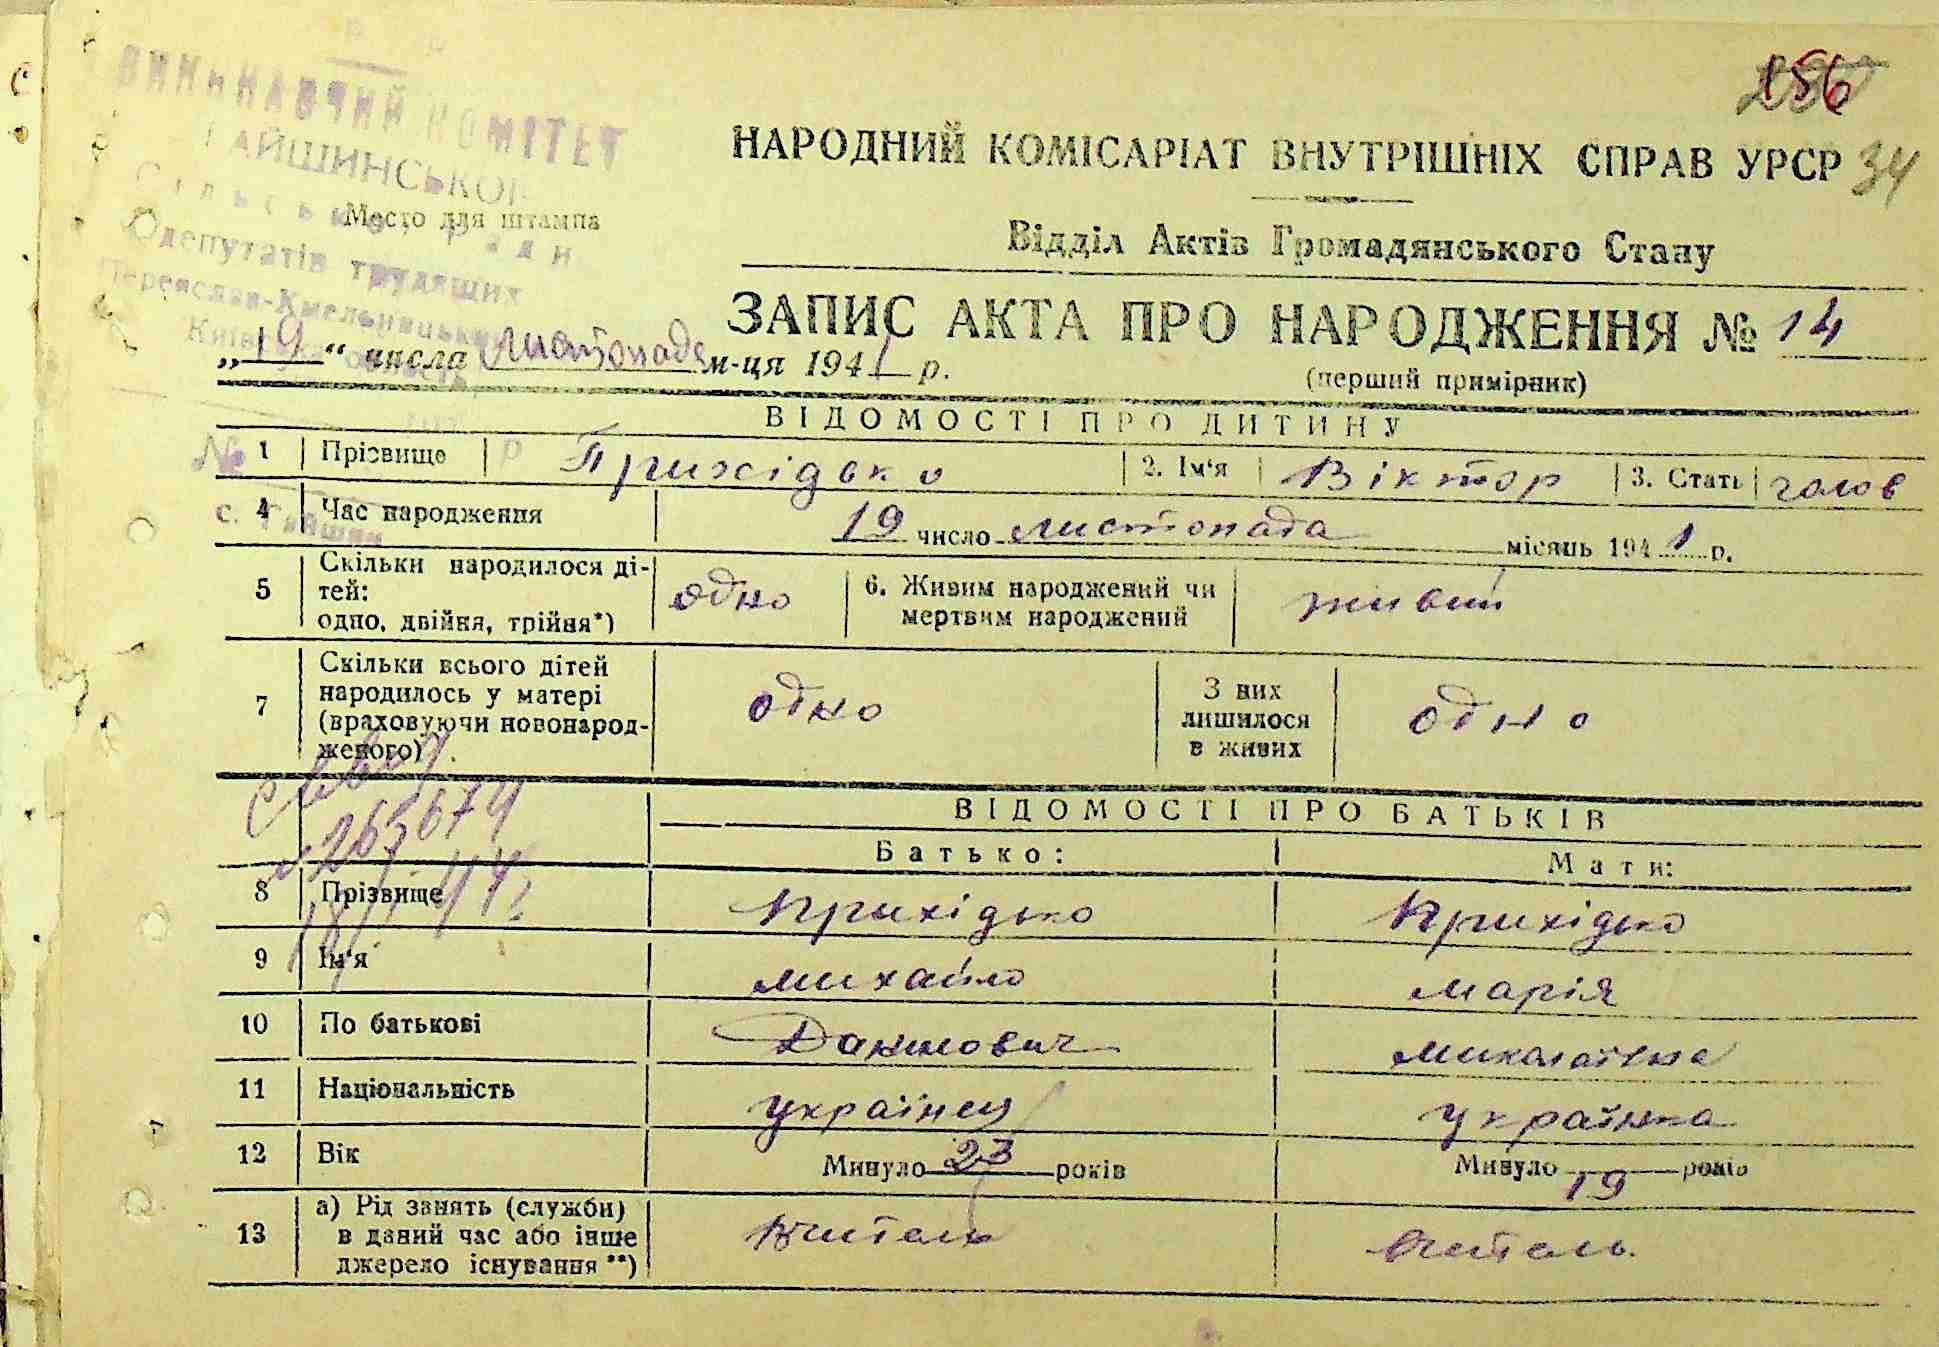 156
34
ВИКОНАВЧИЙ КОМІТЕТ
ГАЙШИНСЬКОЇ
Сільської Ради
депутатів трудящих
Переяслав-Хмельницьк
Київ область
Место для штампа
№
с. Гайшин
НАРОДНИЙ КОМІСАРІАТ ВНУТРІШНІХ СПРАВ УРСР
Відділ Актів Громадянського Стану
ЗАПИС АКТА ПРО НАРОДЖЕННЯ № 14
„19“ числа листопада м-ця 1941 р.
(перший примірник)
ВІДОМОСТІ ПРО ДИТИНУ
1 Прізвище Прихідько 2. Ім'я Віктор 3. Стать чолов
4 Час народження 19 число листопада місяць 1941 р.
5 Скільки народилося ді-
тей:
одно, двійня, трійня*) одно 6. Живим народжений чи
мертвим народжений живий
7 Скільки всього дітей
народилось у матері
(враховуючи новонарод-
женого) одно З них
лишилося
в живих одно
ВІДОМОСТІ ПРО БАТЬКІВ
Батько: Мати:
8 Прізвище Прихідько Прихідько
9 Ім'я Михайло Марія
10 По батькові Данилович Миколаївна
11 Національність українец українка
12 Вік Минуло 23 років Минуло 19 років
13 а) Рід занять (служби)
в даний час або інше
джерело існування **) Вчитель Вчитель.